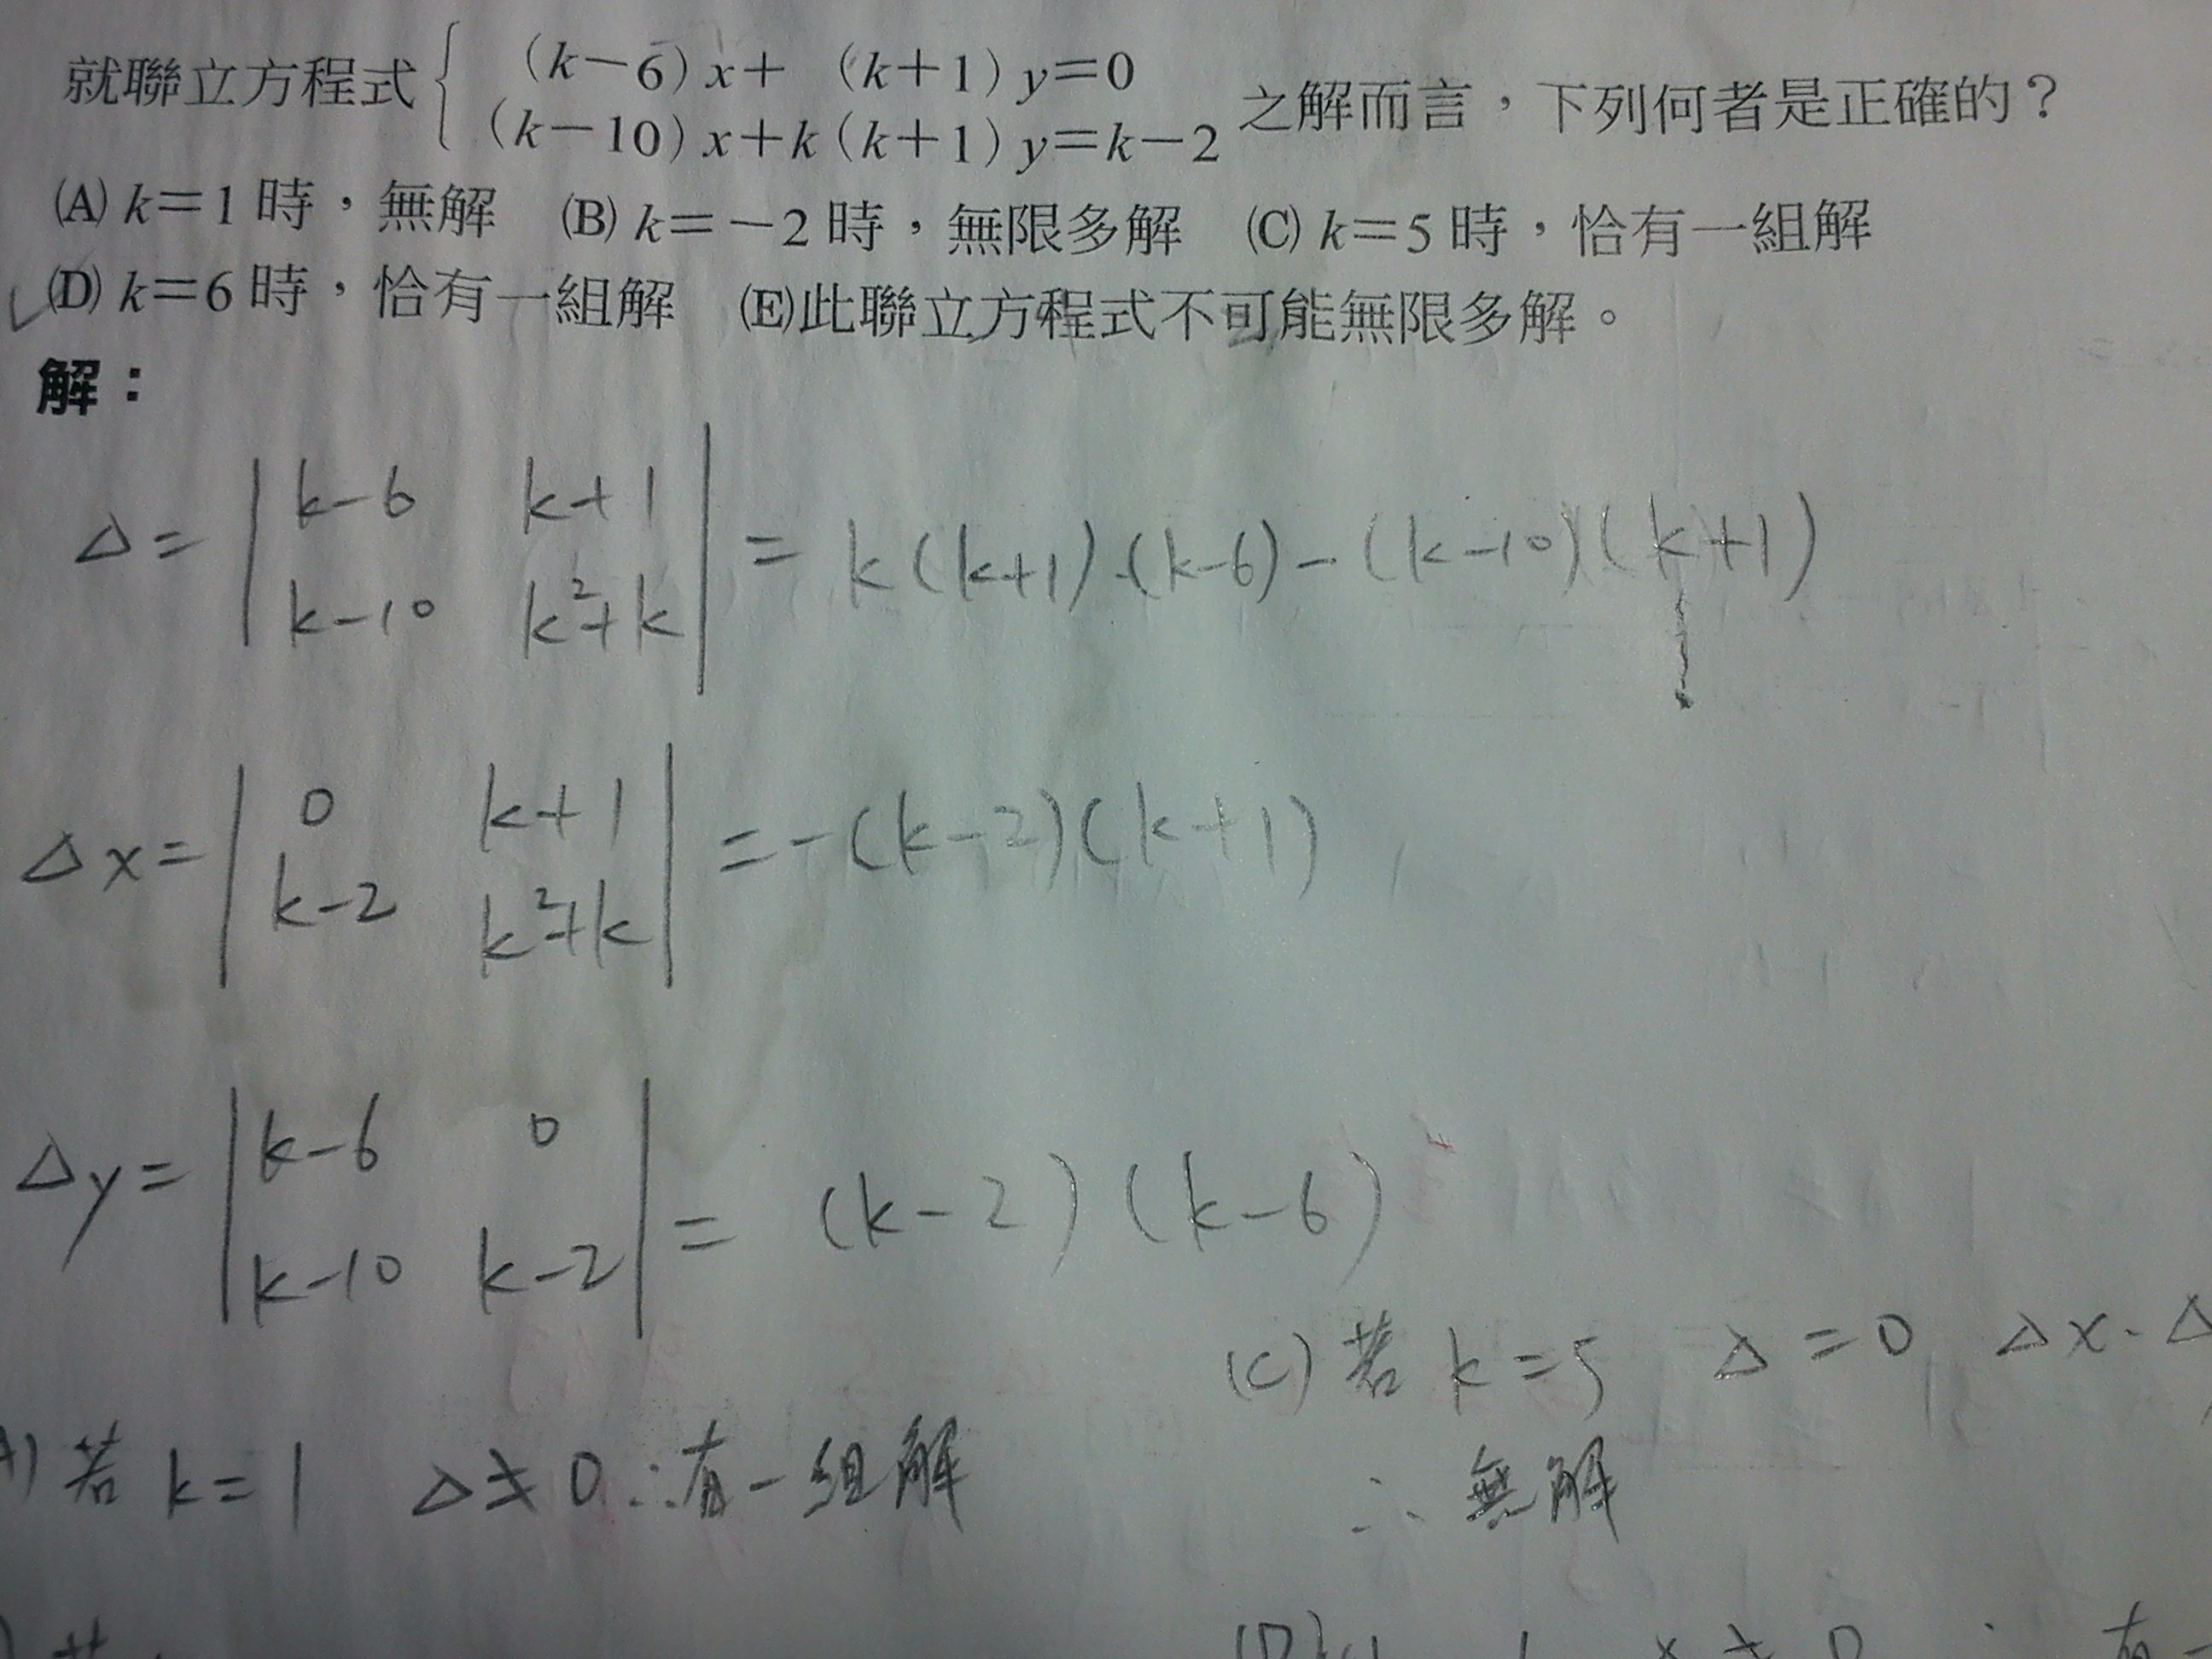 就聯立方程式{ (k－6) x＋ (k＋1) y＝0
(k－10) x＋k (k＋1) y＝k－2 之解而言，下列何者是正確的？
(A) k＝1 時，無解 (B) k＝－2 時，無限多解 (C) k＝5 時，恰有一組解
✓(D) k＝6 時，恰有一組解 (E)此聯立方程式不可能無限多解。
解：
△= | k-6 k+1 | = k(k+1)·(k-6)-(k-10)(k+1)
| k-10 k²+k |
△x= | 0 k+1 | =-(k-2)(k+1)
| k-2 k²+k |
△y= | k-6 0 | = (k-2)(k-6)
| k-10 k-2 |
(C) 若 k=5 △=0 △x·△
∴ 無解
A) 若 k=1 △≠0 ∴有一組解